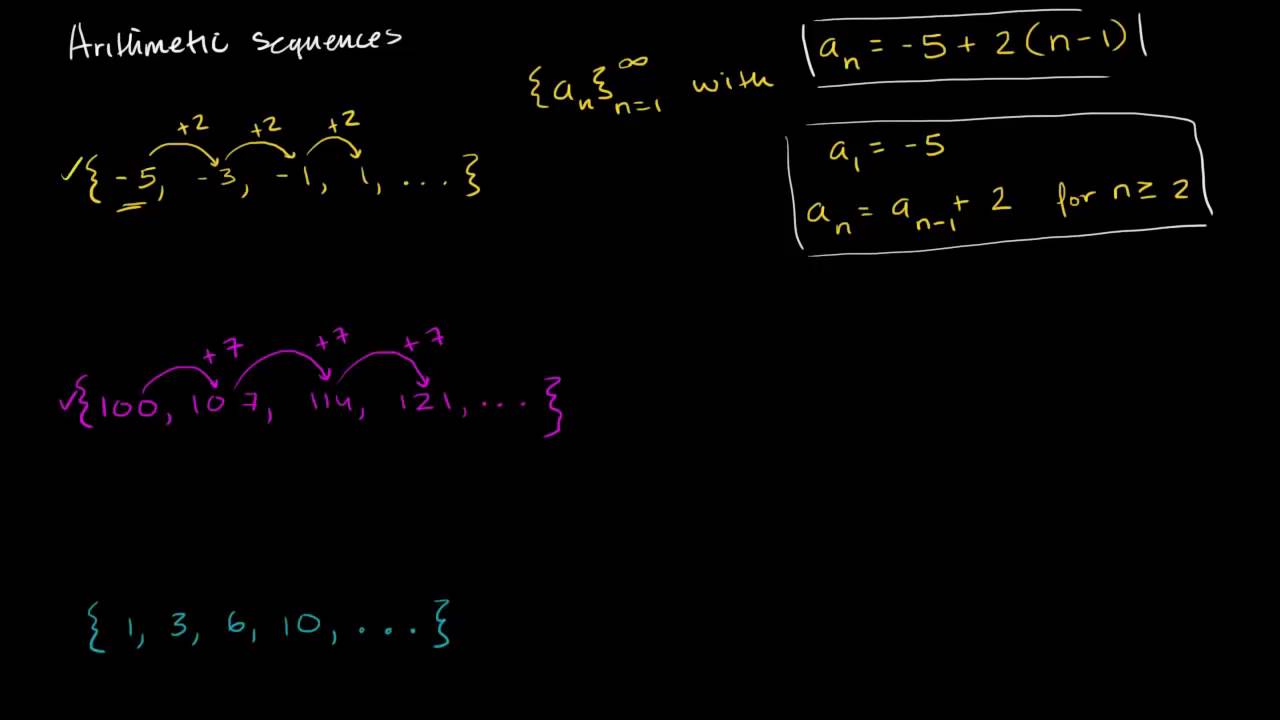 Arithmetic sequences
{a_n}_{n=1}^∞ with a_n = -5 + 2(n-1)
+2 +2 +2
✓{-5, -3, -1, 1, ...}
a_1 = -5
a_n = a_{n-1} + 2 for n ≥ 2
+7 +7 +7
✓{100, 107, 114, 121, ...}
{1, 3, 6, 10, ...}